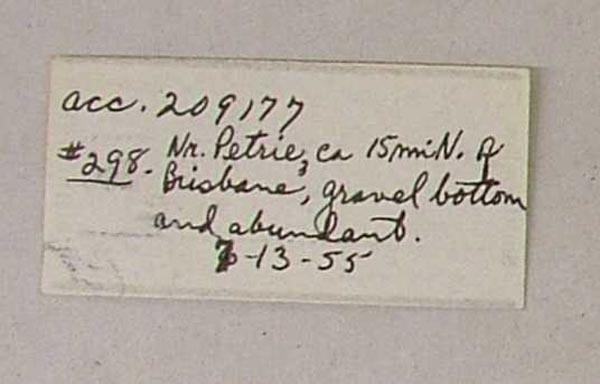 acc. 209177
#298. Nr. Petrie, ca 15 mi N. of
Brisbane, gravel bottom
and abundant.
-13-55